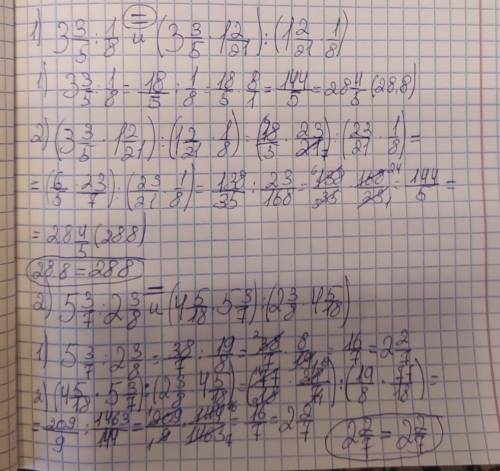 1) 3 3/5 : 1/8 = и (3 3/5 · 1 2/21) : (1 2/21 · 1/8)
1) 3 3/5 : 1/8 = 18/5 : 1/8 = 18/5 · 8/1 = 144/5 = 28 4/5 (28,8)
2) (3 3/5 · 1 2/21) : (1 2/21 · 1/8) = (18/5 · 23/21 7) : (23/21 · 1/8) =
= (6/5 · 23/7) : (23/21 · 1/8) = 138/35 : 23/168 = 6 138/35 · 168 24/23 1 = 144/5 =
= 28 4/5 (28.8)
28,8 = 28.8
2) 5 3/7 : 2 3/8 = и (4 5/18 · 5 3/7) : (2 3/8 · 4 5/18)
1) 5 3/7 : 2 3/8 = 38/7 : 19/8 = 2 38/7 · 8/19 = 16/7 = 2 2/7
2) (4 5/18 · 5 3/7) : (2 3/8 · 4 5/18) = (77/18 · 38/7) : (19/8 · 77/18) =
= 209/9 : 1463/144 = 209/9 · 144/1463 = 16/7 = 2 2/7
2 2/7 = 2 2/7